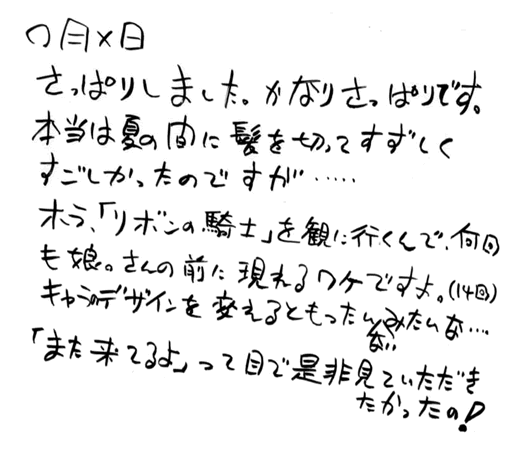 〇月×日
さっぱりしました。かなりさっぱりです。
本当は夏の間に髪を切ってすずしく
すごしかったのですが……
ホラ、「リボンの騎士」を観に行くんで、何回
も娘。さんの前に現れるワケですよ。(14回)
キャラのデザインを変えるともったいないみたいな…
「また来てるよ」って目で是非見ていただき
たかったの!